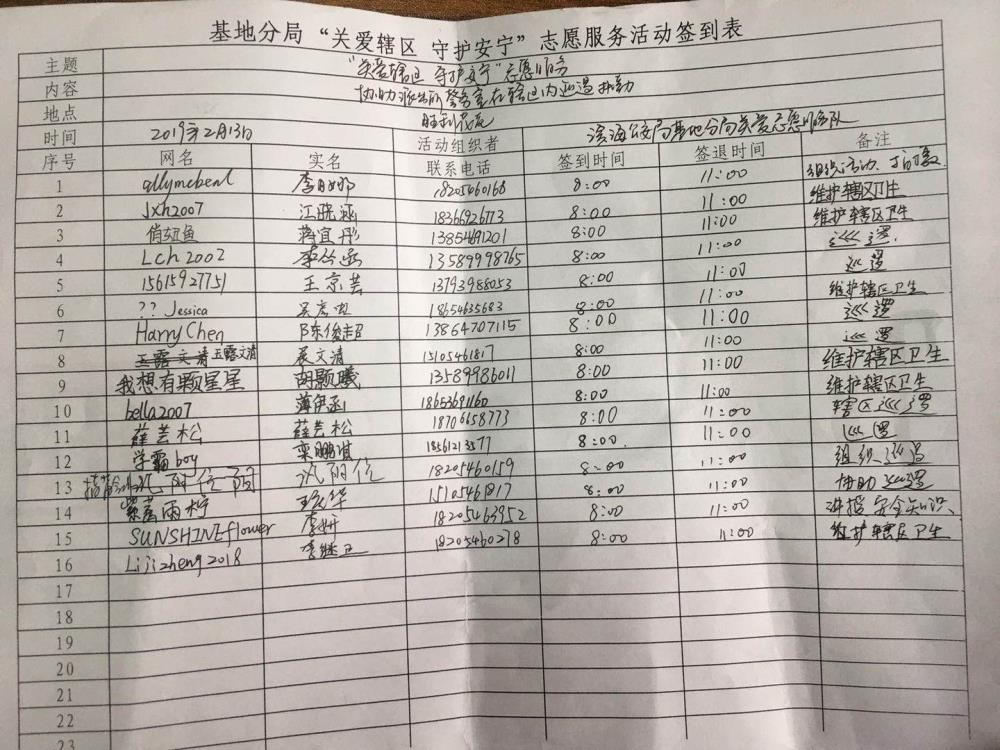 基地分局“关爱辖区 守护安宁”志愿服务活动签到表
主题 “关爱辖区 守护安宁”志愿服务
内容 协助派出所警务室在辖区内巡逻执勤
地点 胜利花苑
时间 2019年2月13日 活动组织者 滨海公安局基地分局关爱志愿服务队
序号 网名 实名 联系电话 签到时间 签退时间 备注
1 allymcbeal 李 18205460168 8:00 11:00 组织活动、
2 Jxh2007 江晓涵 18366926773 8:00 11:00 维护辖区卫生
3 俏妞鱼 蒋宜彤 13854691201 8:00 11:00 维护辖区卫生
4 Lch2002 李 13589998765 8:00 11:00 巡逻.
5 15615927751 王京芸 13793988053 8:00 11:00 巡逻
6 ??Jessica 18654635683 8:00 11:00 维护辖区卫生
7 HarryChen 陈俊超 13864707115 8:00 11:00 巡逻
8 玉露文清 展文清 15105461817 8:00 11:00 巡逻
9 我想有颗星星 胡颢曦 13589986011 8:00 11:00 维护辖区卫生
10 bella2007 薄伊函 18653691160 8:00 11:00 维护辖区卫生
11 薛芸松 薛芸松 18706658773 8:00 11:00 辖区巡逻
12 学霸boy 栾鹏淇 18561213577 8:00. 11:00 巡逻
13 18205460159 8:00 11:00 组织巡逻
14 紫薇雨柠 15105461817 8:00 11:00 协助巡逻
15 SUNSHINEflower 李妍 18205463952 8:00 11:00 讲授安全知识、
16 Lijizheng2018 李继正 18205460278 8:00 11:00 维护辖区卫生
17
18
19
20
21
22
23